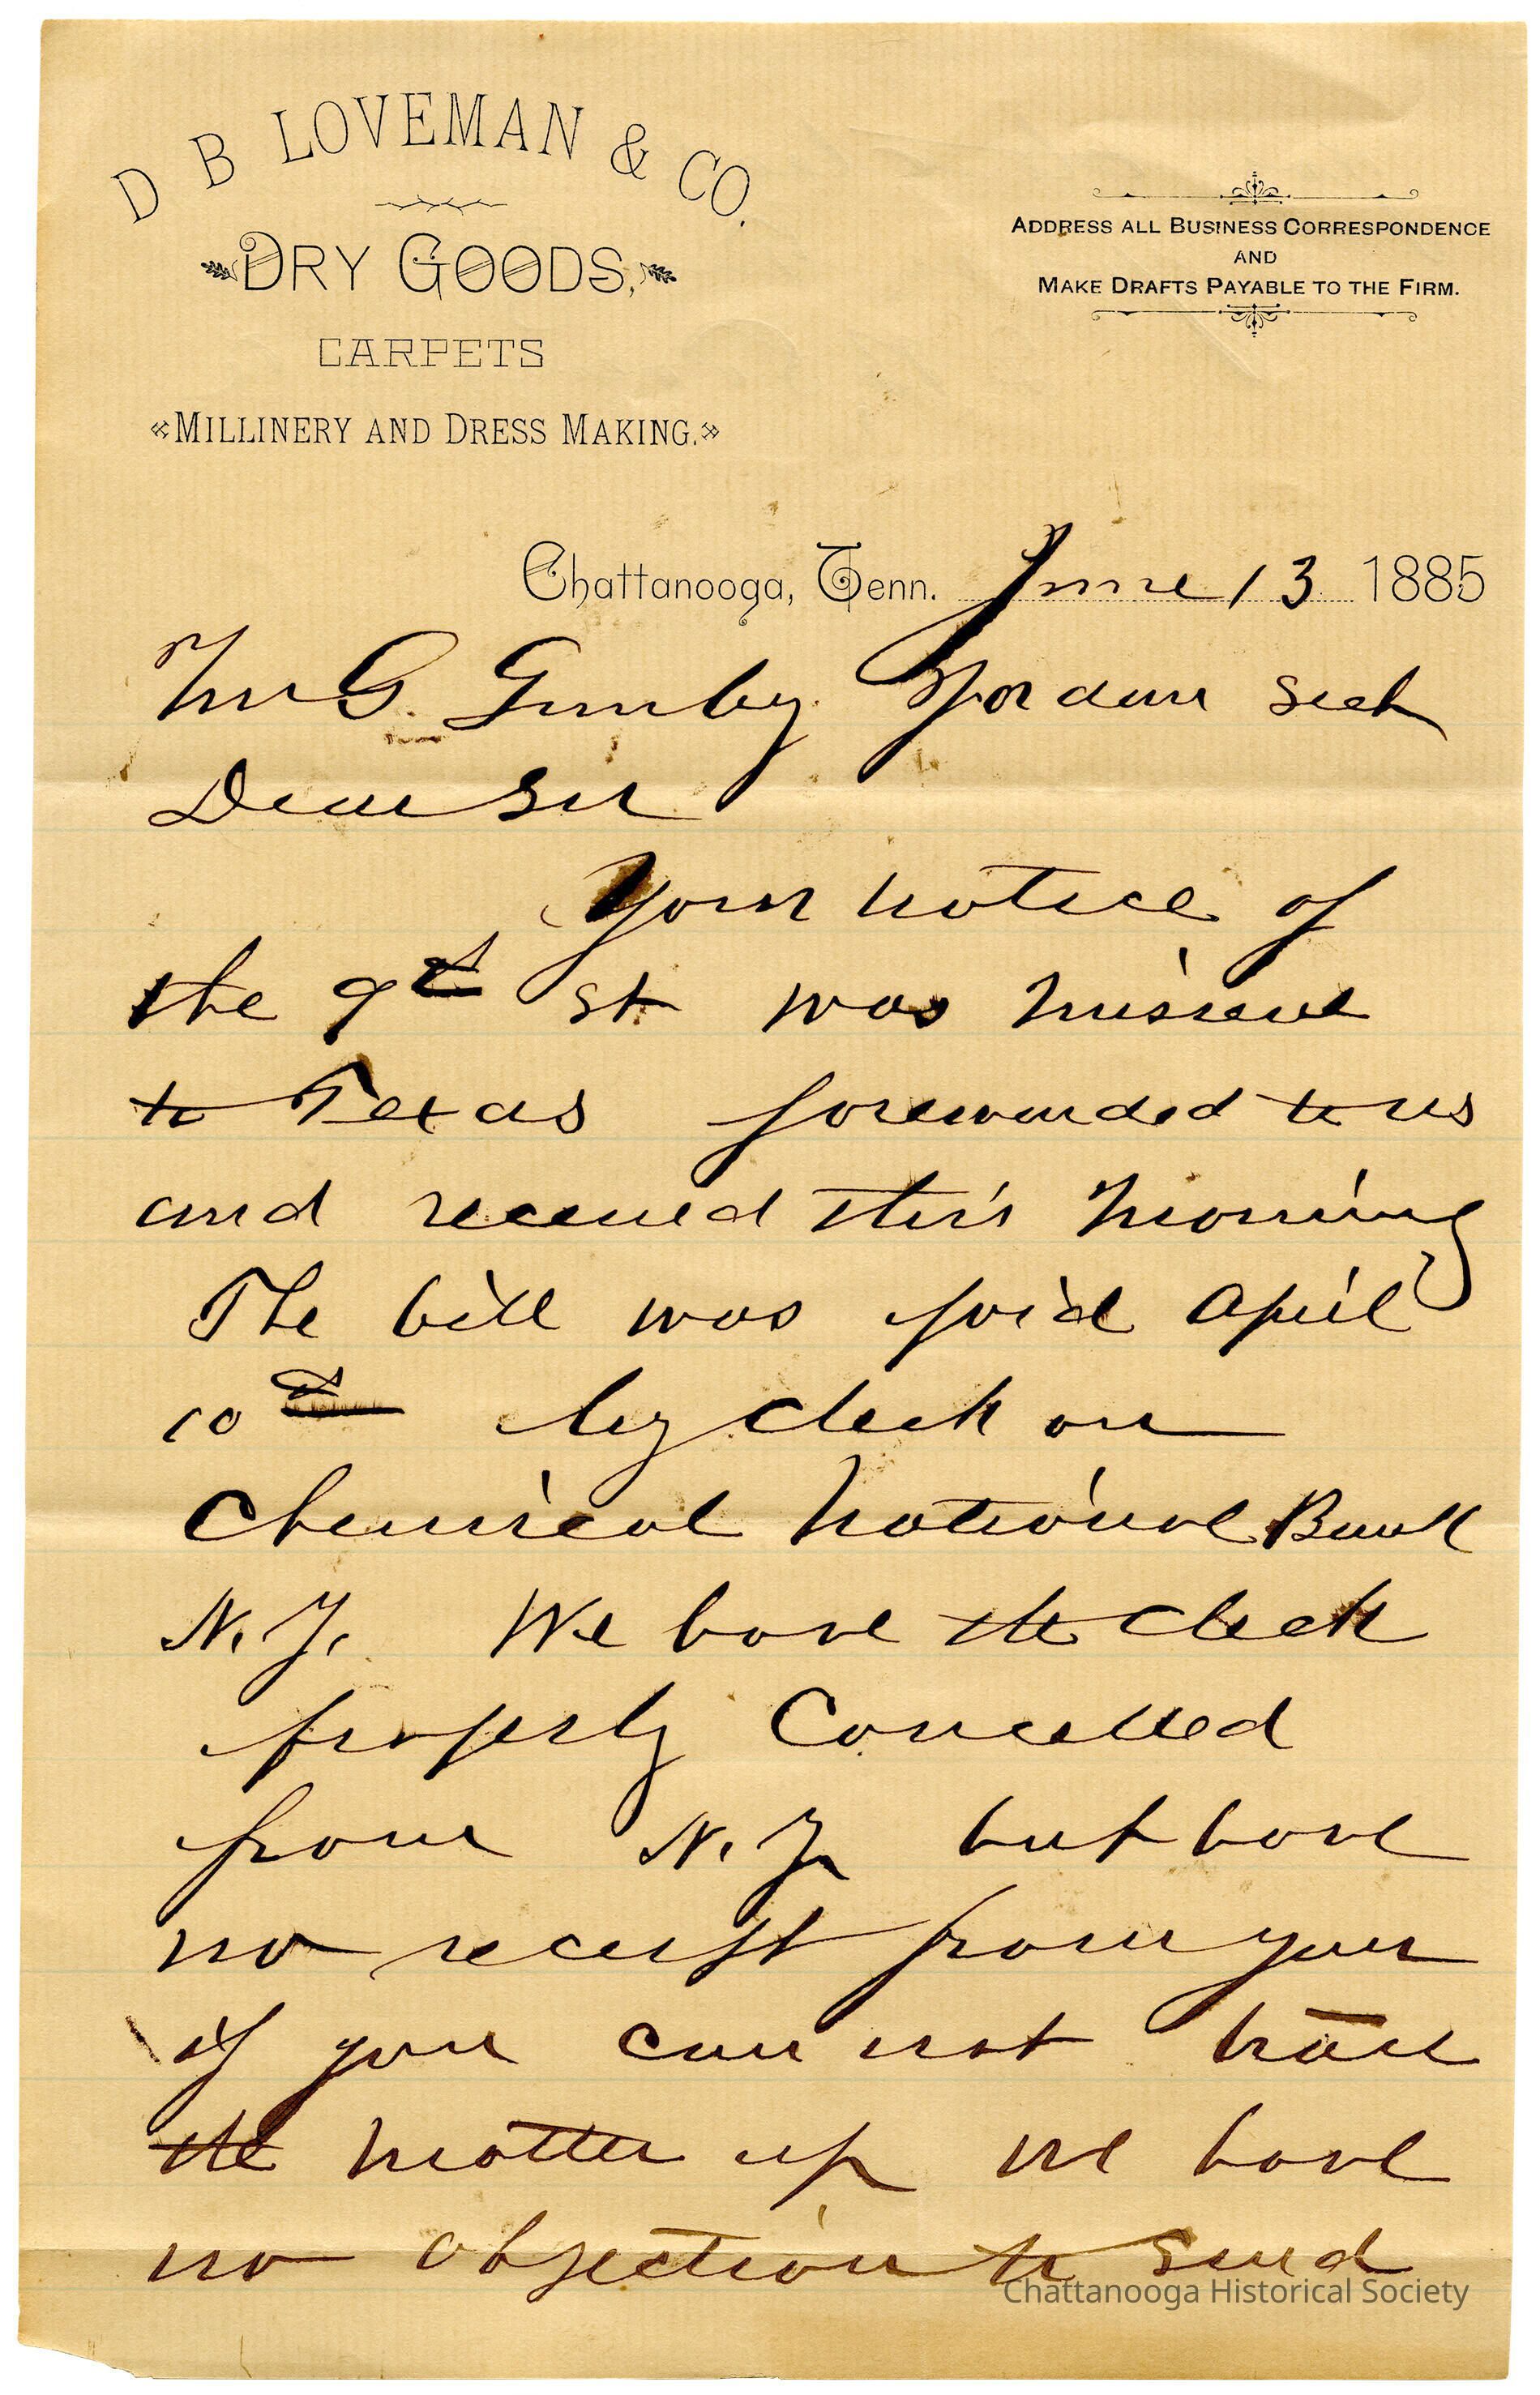 D B LOVEMAN & CO.
DRY GOODS,
CARPETS
MILLINERY AND DRESS MAKING.
ADDRESS ALL BUSINESS CORRESPONDENCE
AND
MAKE DRAFTS PAYABLE TO THE FIRM.
Chattanooga, Tenn. June 13 1885
Mr G. Gunby Jordan
Dear Sir
Your notice of
the 9th st was
to Texas forewarded to us
and received this morning
The bill was paid April
10th by check on
Chemical National Bank
N.Y. We have the check
properly Cancelled
from N.Y. but have
no receipt from you
if you can not trace
the matter up we have
no objection to send
Chattanooga Historical Society